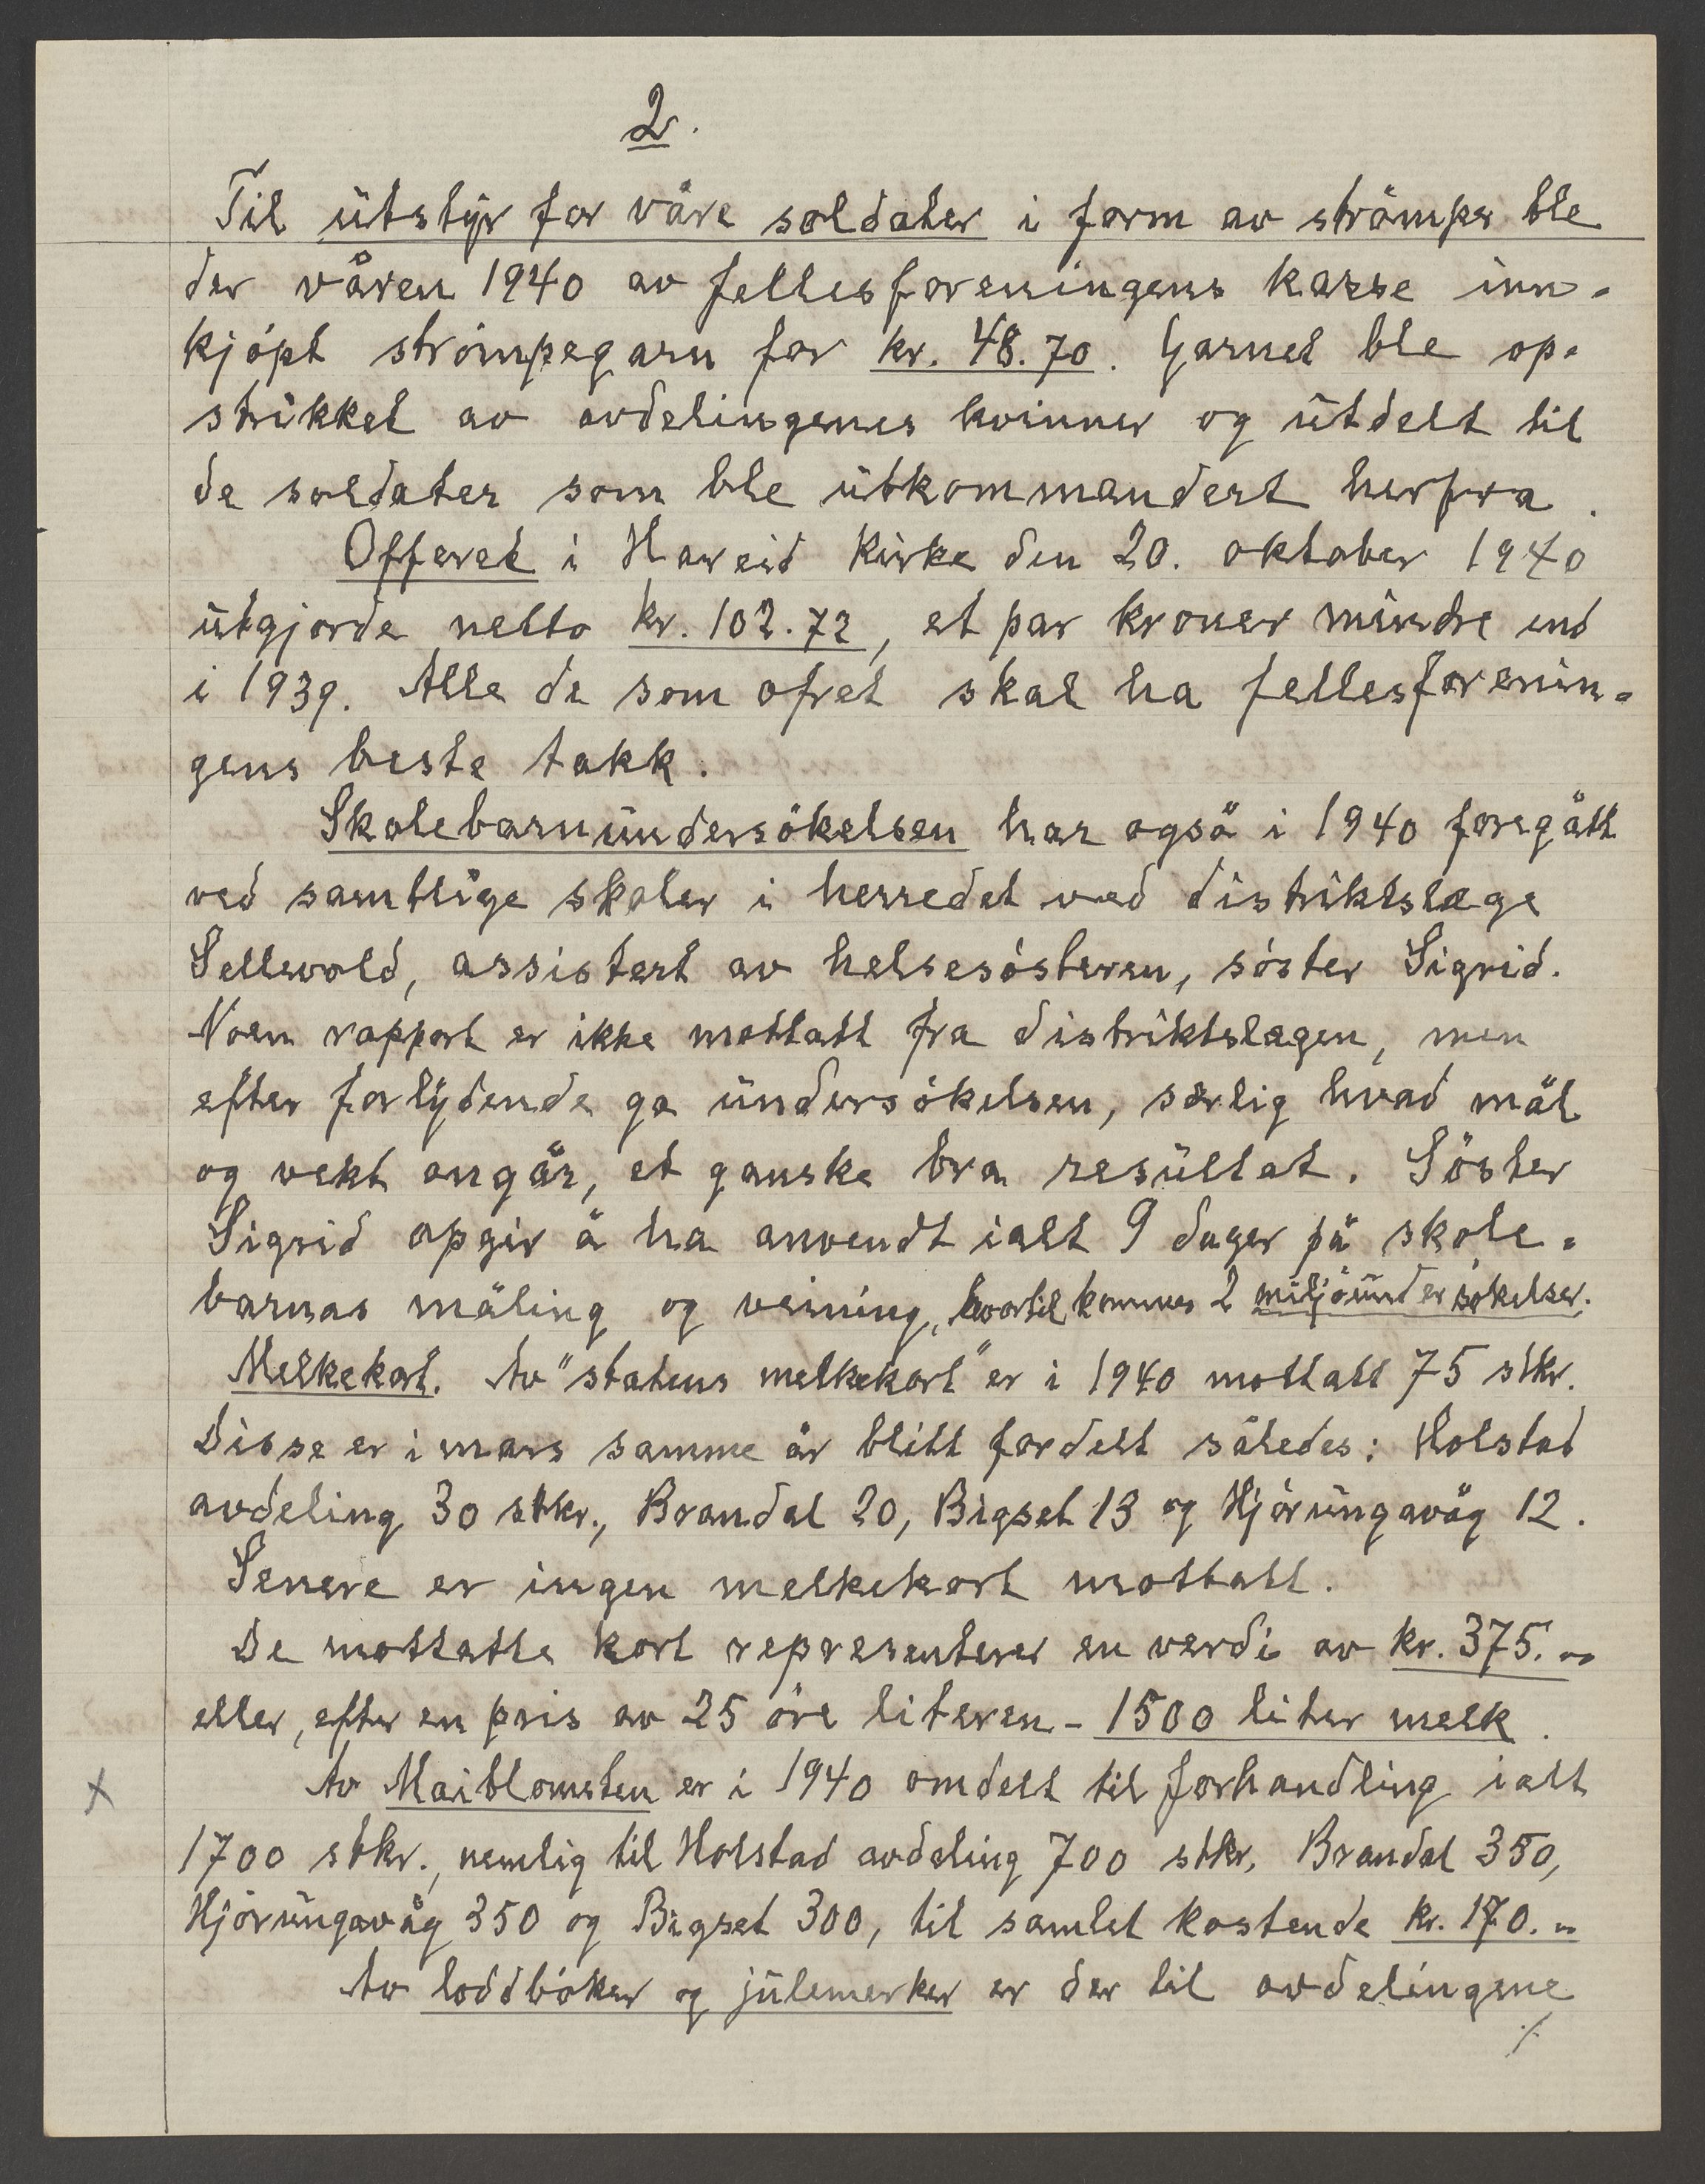 2.
Til utstyr for våre soldater i form av strömper ble
der våren 1940 av fellesforeningens kasse inn-
kjöpt strömpegarn for kr. 48.70. Garnet ble op-
strikket av avdelingenes kvinner og utdelt til
de soldater som ble utkommandert herfra.
Offeret i Hareid Kirke den 20. oktober 1940
utgjorde netto kr. 102.72, et par kroner mindre end
i 1939. Alle de som ofret skal ha fellesforenin-
gens beste takk.
Skolebarnundersökelsen har også i 1940 foregått
ved samtlige skoler i herredet ved distriktslæge
Sellevold, assistert av helsesösteren, söster Sigrid.
Noen rapport er ikke mottatt fra distriktslægen, men
efter forlydende ga undersökelsen, særlig hvad mål
og vekt angår, et ganske bra resultat. Söster
Sigrid opgir å ha anvendt ialt 9 dager på skole-
barnas måling og veining, hvortil kommer 2 miljöundersökelser.
Melkekort. Av "statens melkekort" er i 1940 mottatt 75 stkr.
Disse er i mars samme år blitt fordelt således: Holstad
avdeling 30 stkr., Brandal 20, Bigset 13 og Hjörungavåg 12.
Senere er ingen melkekort mottatt.
De mottatte kort representerer en verdi av kr. 375.-
eller, efter en pris av 25 öre literen - 1500 liter melk.
x Av Maiblomsten er i 1940 omdelt til forhandling ialt
1700 stkr., nemlig til Holstad avdeling 700 stkr. Brandal 350,
Hjörungavåg 350 og Bigset 300, til samlet kostende kr. 170.-
Av loddböker og julemerker er der til avdelingene
./.